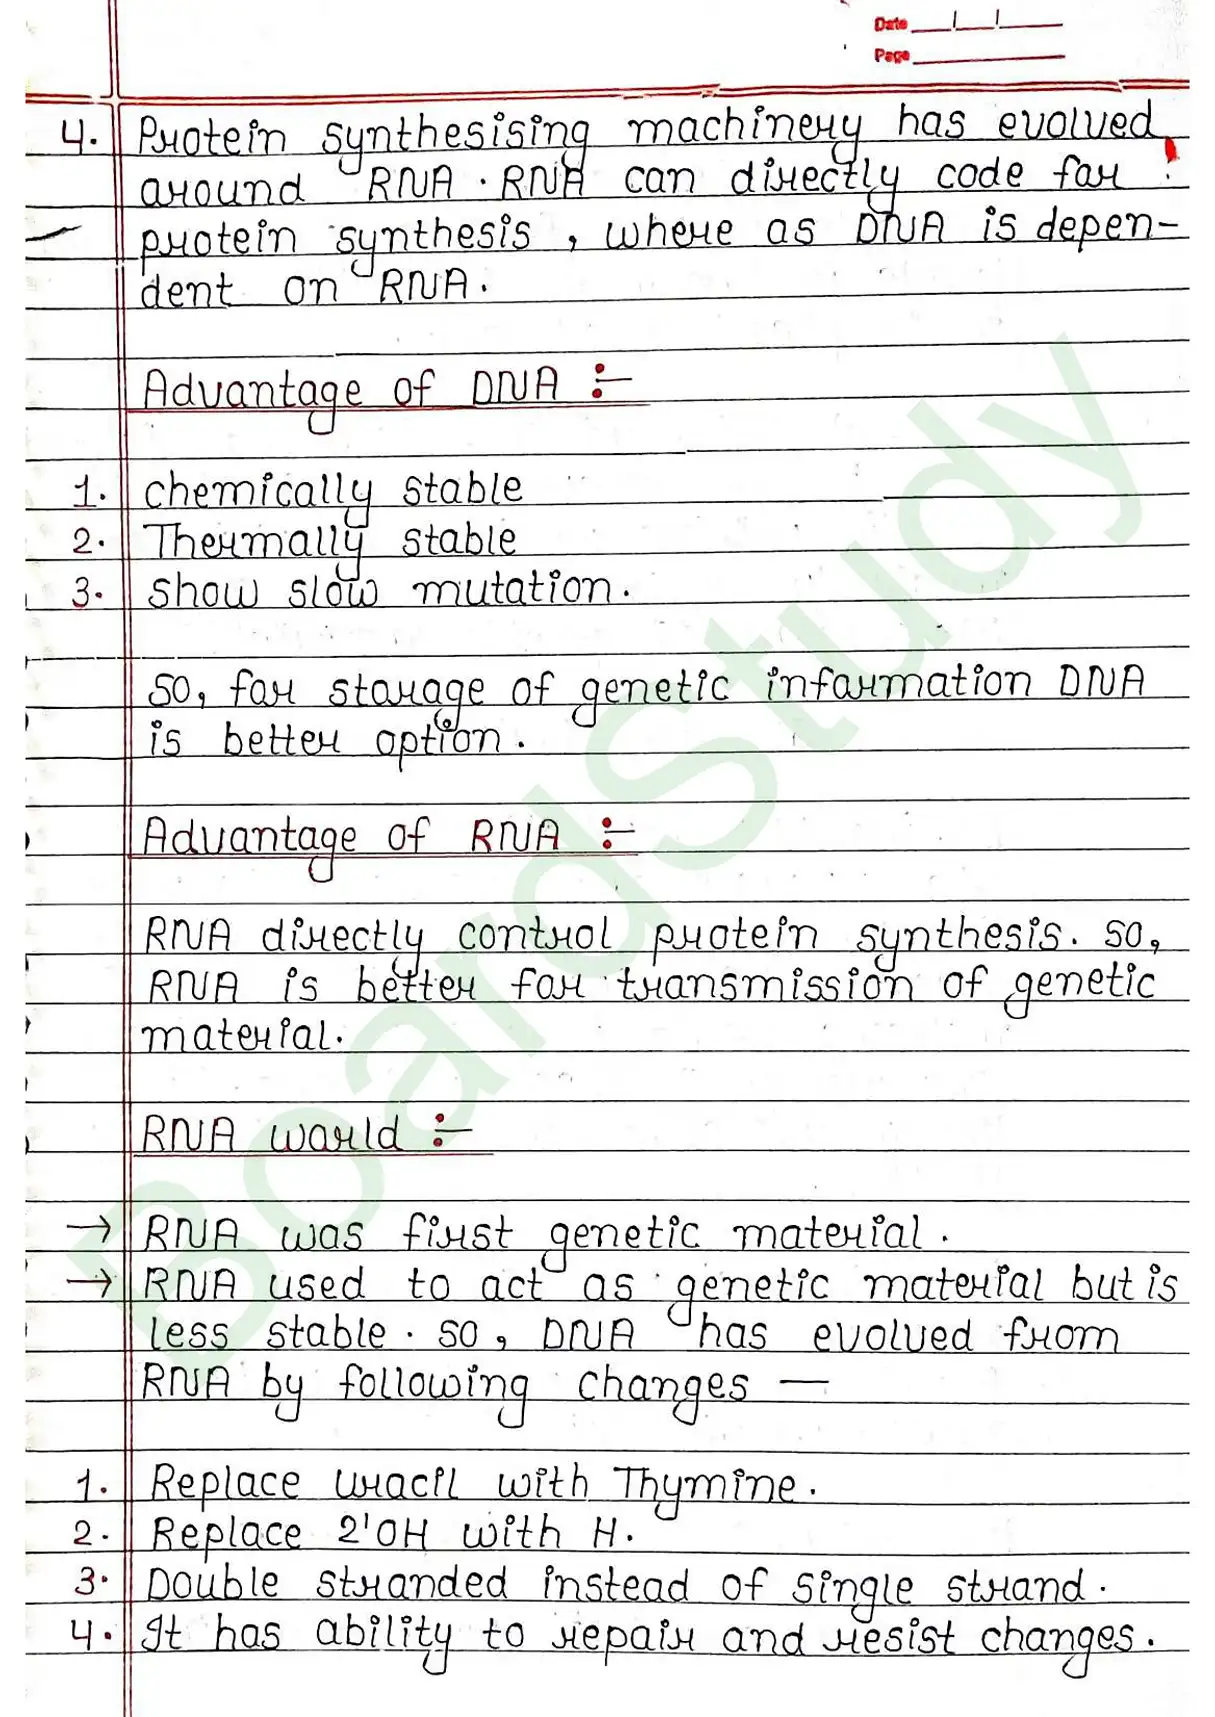 Date
Page
4. Protein synthesising machinery has evolved
around RNA. RNA can directly code for
protein synthesis, where as DNA is depen-
dent on RNA.
Advantage of DNA :-
1. chemically stable
2. Thermally stable
3. show slow mutation.
So, for storage of genetic information DNA
is better option.
Advantage of RNA :-
RNA directly control protein synthesis. So,
RNA is better for transmission of genetic
material.
RNA world :-
→ RNA was first genetic material.
→ RNA used to act as genetic material but is
less stable. So, DNA has evolved from
RNA by following changes —
1. Replace uracil with Thymine.
2. Replace 2'OH with H.
3. Double stranded instead of single strand.
4. It has ability to repair and resist changes.
BoardStudy